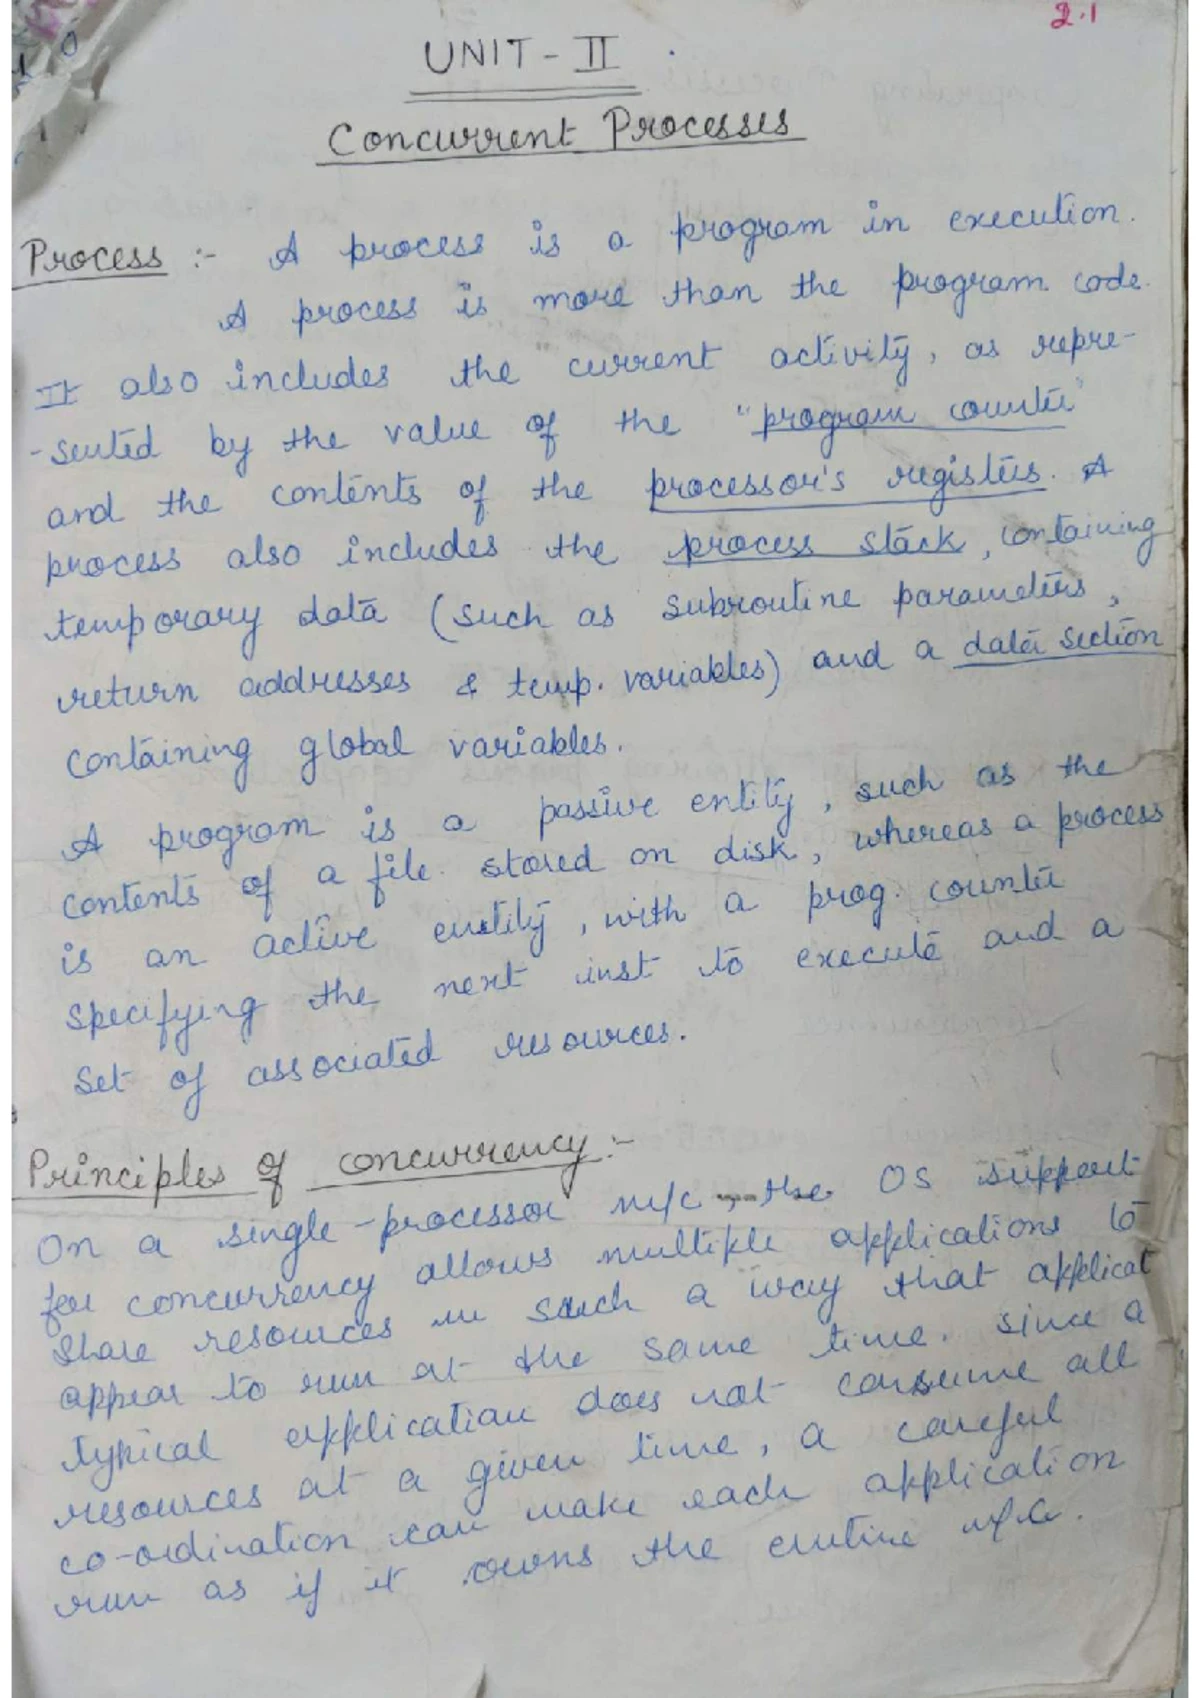 2.1
UNIT - II
Concurrent Processes
Process :- A process is a program in execution.
A process is more than the program code.
It also includes the current activity, as repre-
-sented by the value of the "program counter"
and the contents of the processor's registers. A
process also includes the process stack, containing
temporary data (such as subroutine parameters,
return addresses & temp. variables) and a data section
containing global variables.
A program is a passive entity, such as the
contents of a file stored on disk, whereas a process
is an active entity, with a prog. counter
specifying the next inst to execute and a
set of associated resources.
Principles of concurrency :-
On a single-processor m/c, the OS support
for concurrency allows multiple applications to
share resources in such a way that applicat
appear to run at the same time. Since a
typical application does not consume all
resources at a given time, a careful
co-ordination can make each application
run as if it owns the entire m/c.